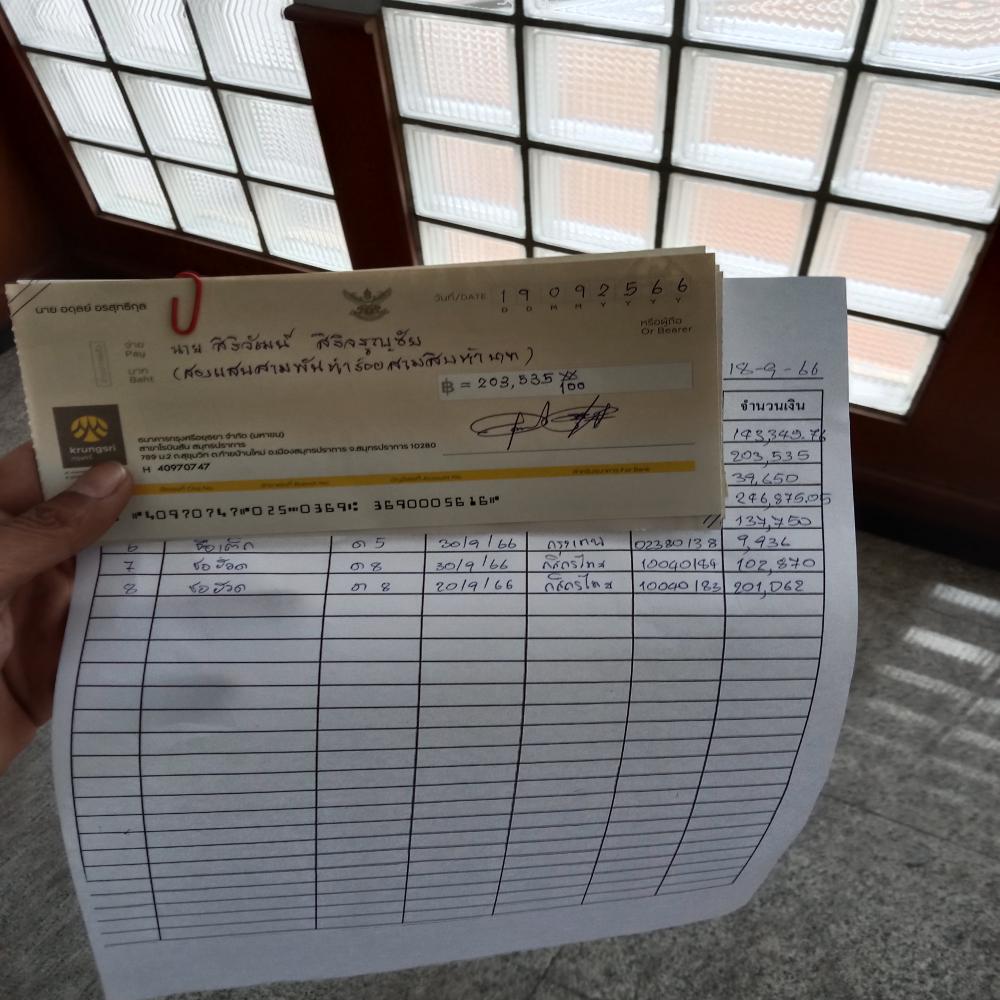 นาย อดุลย์ อรสุทธิกุล
วันที่/DATE 1 9 0 9 2 5 6 6
D D M M Y Y Y Y
หรือผู้ถือ
Or Bearer
จ่าย
Pay
นาย สิริวัฒน์ สิริจรูญชัย
บาท
Baht
(สองแสนสามพันห้าร้อยสามสิบห้าบาท)
฿ = 203,535 xx/100
krungsri
กรุงศรี
ธนาคารกรุงศรีอยุธยา จำกัด (มหาชน)
สาขาโรบินสัน สมุทรปราการ
789 ม.2 ถ.สุขุมวิท ต.ท้ายบ้านใหม่ อ.เมืองสมุทรปราการ จ.สมุทรปราการ 10280
H 40970747
สำหรับธนาคาร For Bank
⑈40970747⑈025⑉0369⑆ 3690005616⑈
18-9-66
จำนวนเงิน
203,535
39,650
246,875.05
137,750
6 ด 5 30/9/66 กรุงเทพ 02380138 9,936
7 ช่อฮวด ด 8 30/9/66 กสิกรไทย 10040184 102,870
8 ช่อฮวด ด 8 20/9/66 กสิกรไทย 10040183 201,062